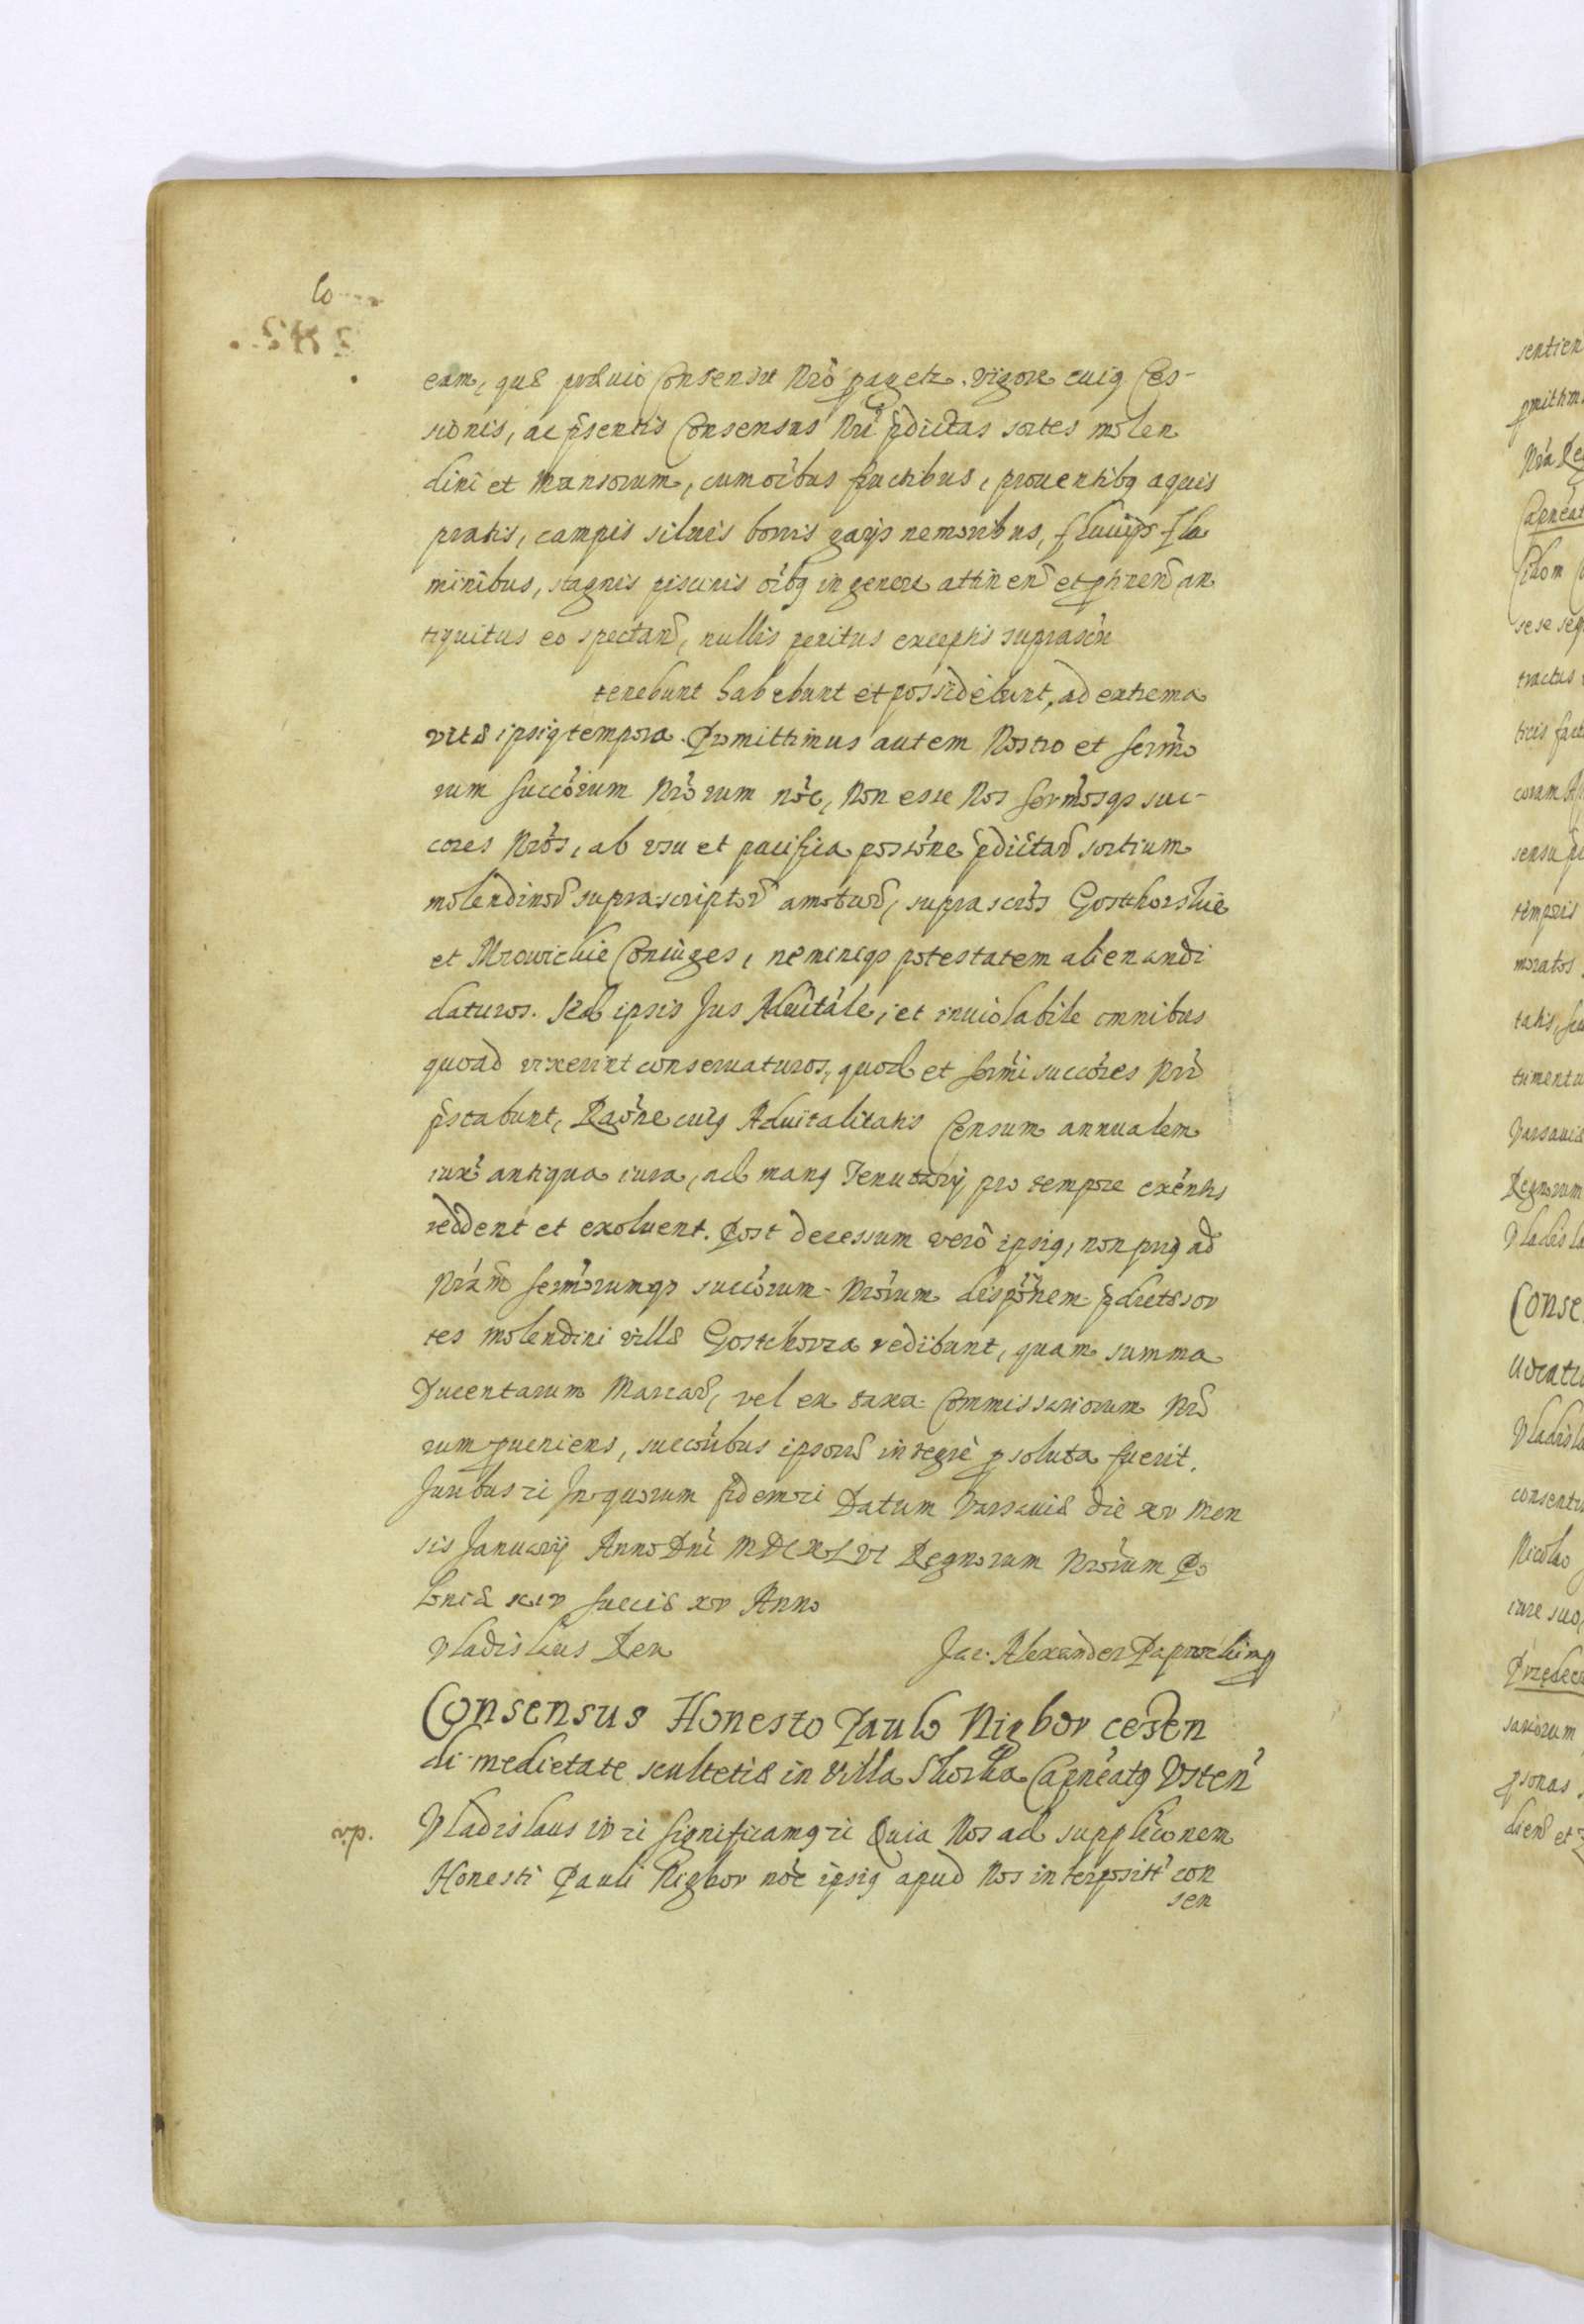 eam, quæ præuio Consensu Nrõ pagetr. vigore cuig Ces-
sionis, ac p̃sentis Consensus Nri p̃dictas sortes molen
dini et Mansorum, cum oi̇bus fructibus, prouentibg aquis
pratis, campis siluis borris gaijs nemoribus, fluuijs flu
minibus, stagnis piscinis oi̇bg in genere attinen̄ et ptinen̄ an
tiquitus eo spectan̄, nullis penitus exceptis suprascr̃
tenebunt habebunt et possidebunt, ad extrema
vitæ ipsig tempora. Promittimus autem Nostro et Serm̃o
rum Succorum Nrõrum nõe, Non esse Nos Serm̃osqs suc-
cores Nrõs, ab vsu et pacifica possõne p̃dictar̄ sortium
molendinor̄ suprascriptor̄ amoturos, suprascrõs Gostchorskie
et Mrowickie Coniuges, neminiqs potestatem alienandi
daturos. Sed ipsis Jus Aduitale, et inuiolabile omnibus
quoad vixerint conseruaturos, quod et Serm̃i succõres Nrĩ
p̃stabunt, Raõne cuig Aduitalitatis Censum annualem
iuxt antiqua iura, ad mang Tenutarij pro tempore exẽntis
reddent et exoluent. Post decessum verò ipsig, non prig ad
Nrãm Serm̃orumqs succõrum Nrõrum dispõnem p̃dictæ sor
tes molendini villæ Gostchorza redibunt, quam summa
Ducentarum Marcar̄, vel ex taxa Commissariorum Nrõ
rum pueniens, succõribus ipsorū integrè psoluta fuerit.
Juribus ʒi In quorum fidem ʒi Datum Varsauiæ die xv Men
sis Januarij Anno Dnĩ MDCXLVI Regnorum Nrõrum Po
loniæ xiv Sueciæ xv Anno
Vladislaus Rex Jac: Alexander Paprocki mp
Consensus Honesto Paulo Nigbor ceden
di medietate scultetiæ in Villa Skorka Capneatg Vsten̄
vp. Vladislaus iv ʒi Significamg ʒi Quia Nos ad supplicõnem
Honesti Pauli Nigbor nõe ipsig apud Nos interposit̃ con
sen